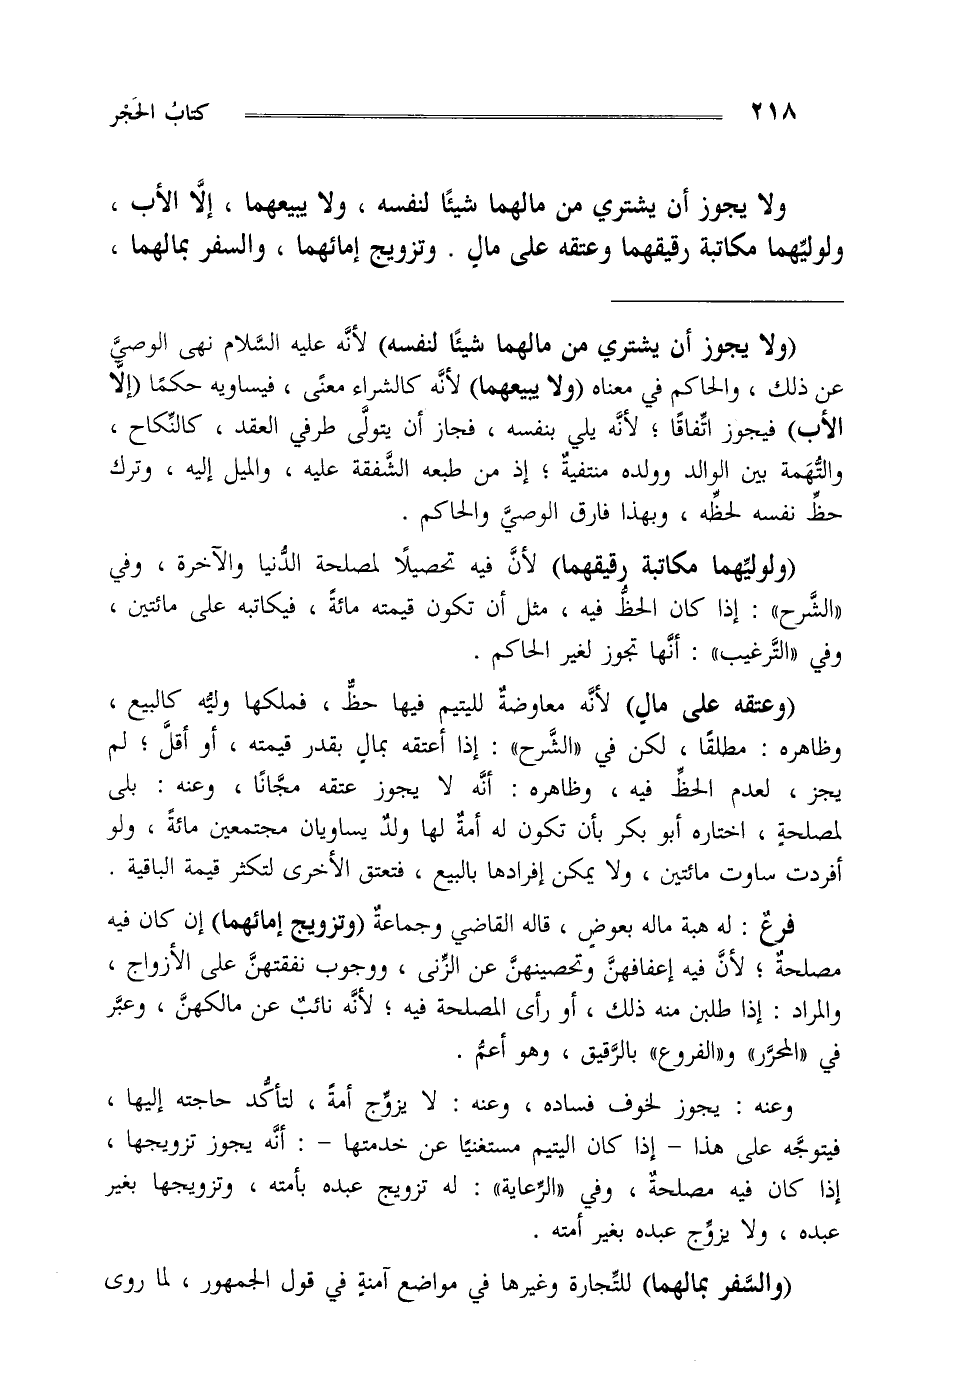 ٢١٨ كتابُ الحَجْر
ولا يجوز أن يشتري من مالهما شيئًا لنفسه ، ولا يبيعهما ، إلَّا الأب ،
ولوليِّهما مكاتبة رقيقهما وعتقه على مالٍ . وتزويج إمائهما ، والسفر بمالهما ،
(ولا يجوز أن يشتري من مالهما شيئًا لنفسه) لأنَّه عليه السَّلام نهى الوصيَّ
عن ذلك ، والحاكم في معناه (ولا يبيعهما) لأنَّه كالشراء معنًى ، فيساويه حكمًا (إلَّا
الأب) فيجوز اتِّفاقًا ؛ لأنَّه يلي بنفسه ، فجاز أن يتولَّى طرفي العقد ، كالنِّكاح ،
والتُّهَمة بين الوالد وولده منتفيةٌ ؛ إذ من طبعه الشَّفقة عليه ، والميل إليه ، وترك
حظِّ نفسه لحظِّه ، وبهذا فارق الوصيَّ والحاكم .
(ولوليِّهما مكاتبة رقيقهما) لأنَّ فيه تحصيلًا لمصلحة الدُّنيا والآخرة ، وفي
«الشَّرح» : إذا كان الحظُّ فيه ، مثل أن تكون قيمته مائةً ، فيكاتبه على مائتين ،
وفي «التَّرغيب» : أنَّها تجوز لغير الحاكم .
(وعتقه على مالٍ) لأنَّه معاوضةٌ لليتيم فيها حظٌّ ، فملكها وليُّه كالبيع ،
وظاهره : مطلقًا ، لكن في «الشَّرح» : إذا أعتقه بمالٍ بقدر قيمته ، أو أقلَّ ؛ لم
يجز ، لعدم الحظِّ فيه ، وظاهره : أنَّه لا يجوز عتقه مجَّانًا ، وعنه : بلى
لمصلحةٍ ، اختاره أبو بكر بأن تكون له أمةٌ لها ولدٌ يساويان مجتمعين مائةً ، ولو
أفردت ساوت مائتين ، ولا يمكن إفرادها بالبيع ، فتعتق الأخرى لتكثر قيمة الباقية .
فرعٌ : له هبة ماله بعوضٍ ، قاله القاضي وجماعةٌ (وتزويج إمائهما) إن كان فيه
مصلحةٌ ؛ لأنَّ فيه إعفافهنَّ وتحصينهنَّ عن الزِّنى ، ووجوب نفقتهنَّ على الأزواج ،
والمراد : إذا طلبن منه ذلك ، أو رأى المصلحة فيه ؛ لأنَّه نائبٌ عن مالكهنَّ ، وعبَّر
في «المحرَّر» و«الفروع» بالرَّقيق ، وهو أعمُّ .
وعنه : يجوز لخوف فساده ، وعنه : لا يزوِّج أمةً ، لتأكُّد حاجته إليها ،
فيتوجَّه على هذا – إذا كان اليتيم مستغنيًا عن خدمتها – : أنَّه يجوز تزويجها ،
إذا كان فيه مصلحةٌ ، وفي «الرِّعاية» : له تزويج عبده بأمته ، وتزويجها بغير
عبده ، ولا يزوِّج عبده بغير أمته .
(والسَّفر بمالهما) للتِّجارة وغيرها في مواضع آمنةٍ في قول الجمهور ، لما روى